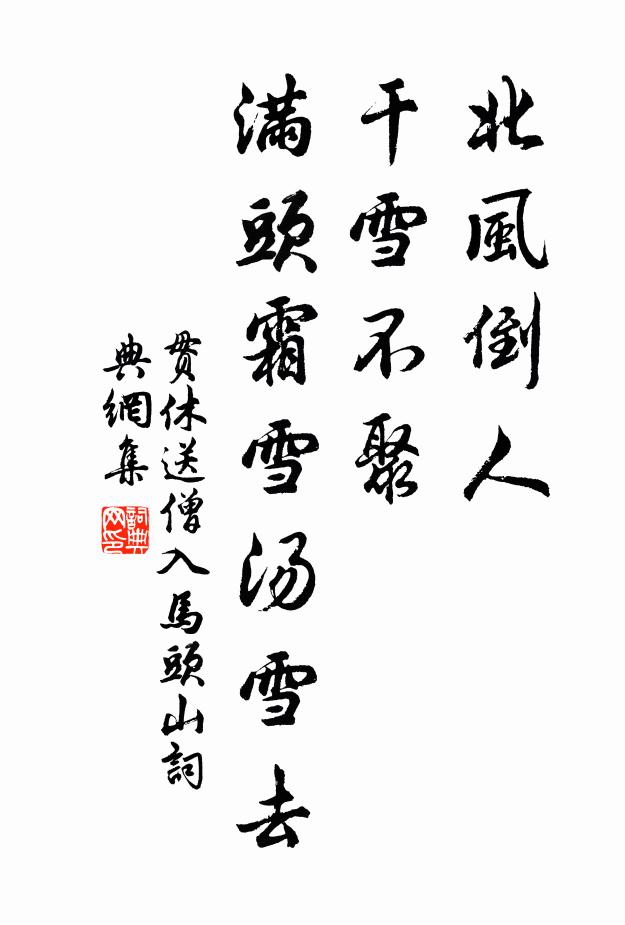 北風倒人
干雪不聚
滿頭霜雪汤雪去
貫休送僧入馬頭山詞
典網集
詞典
网印